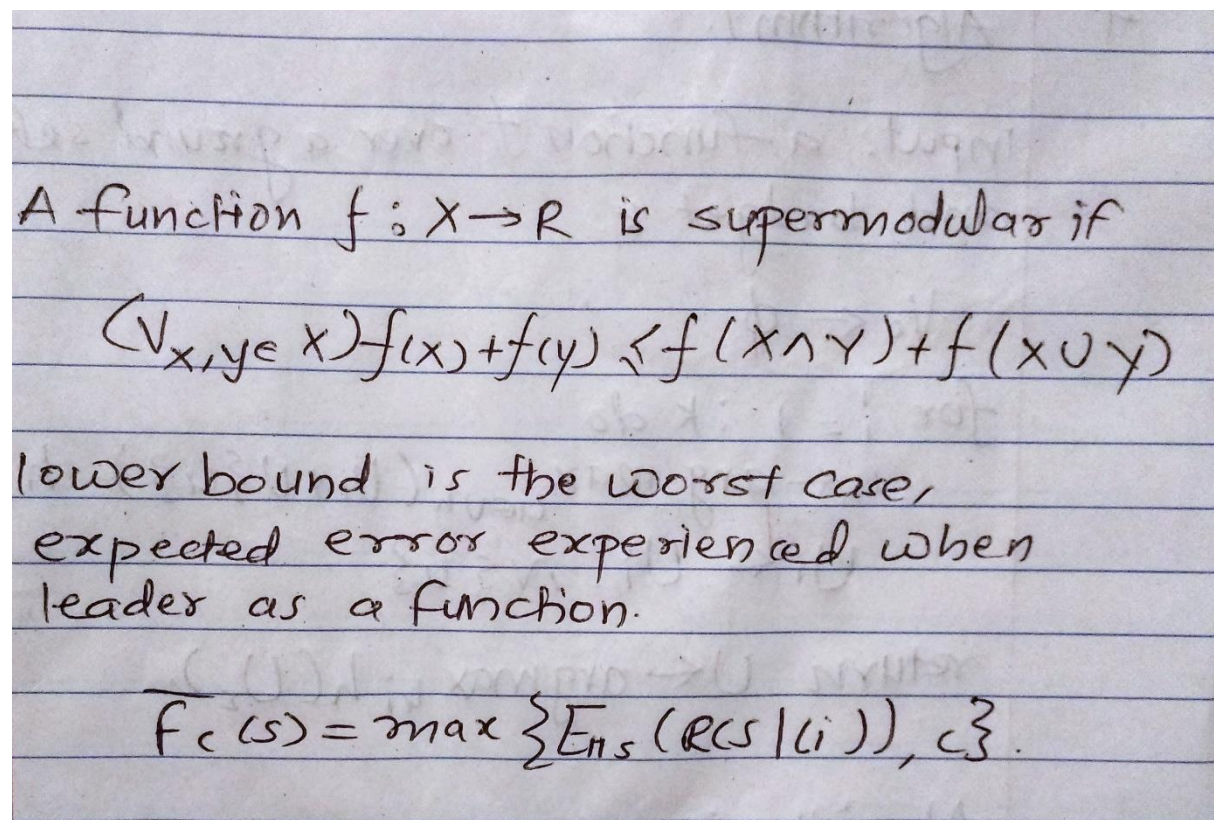 A function f : X→R is supermodular if
(∀x,y∈ X) f(x)+f(y) ≤ f(X∩Y)+f(x∪y)
lower bound is the worst case,
expected error experienced when
leader as a function.
F̅c(s) = max {Ens (R(S|li)), c}.